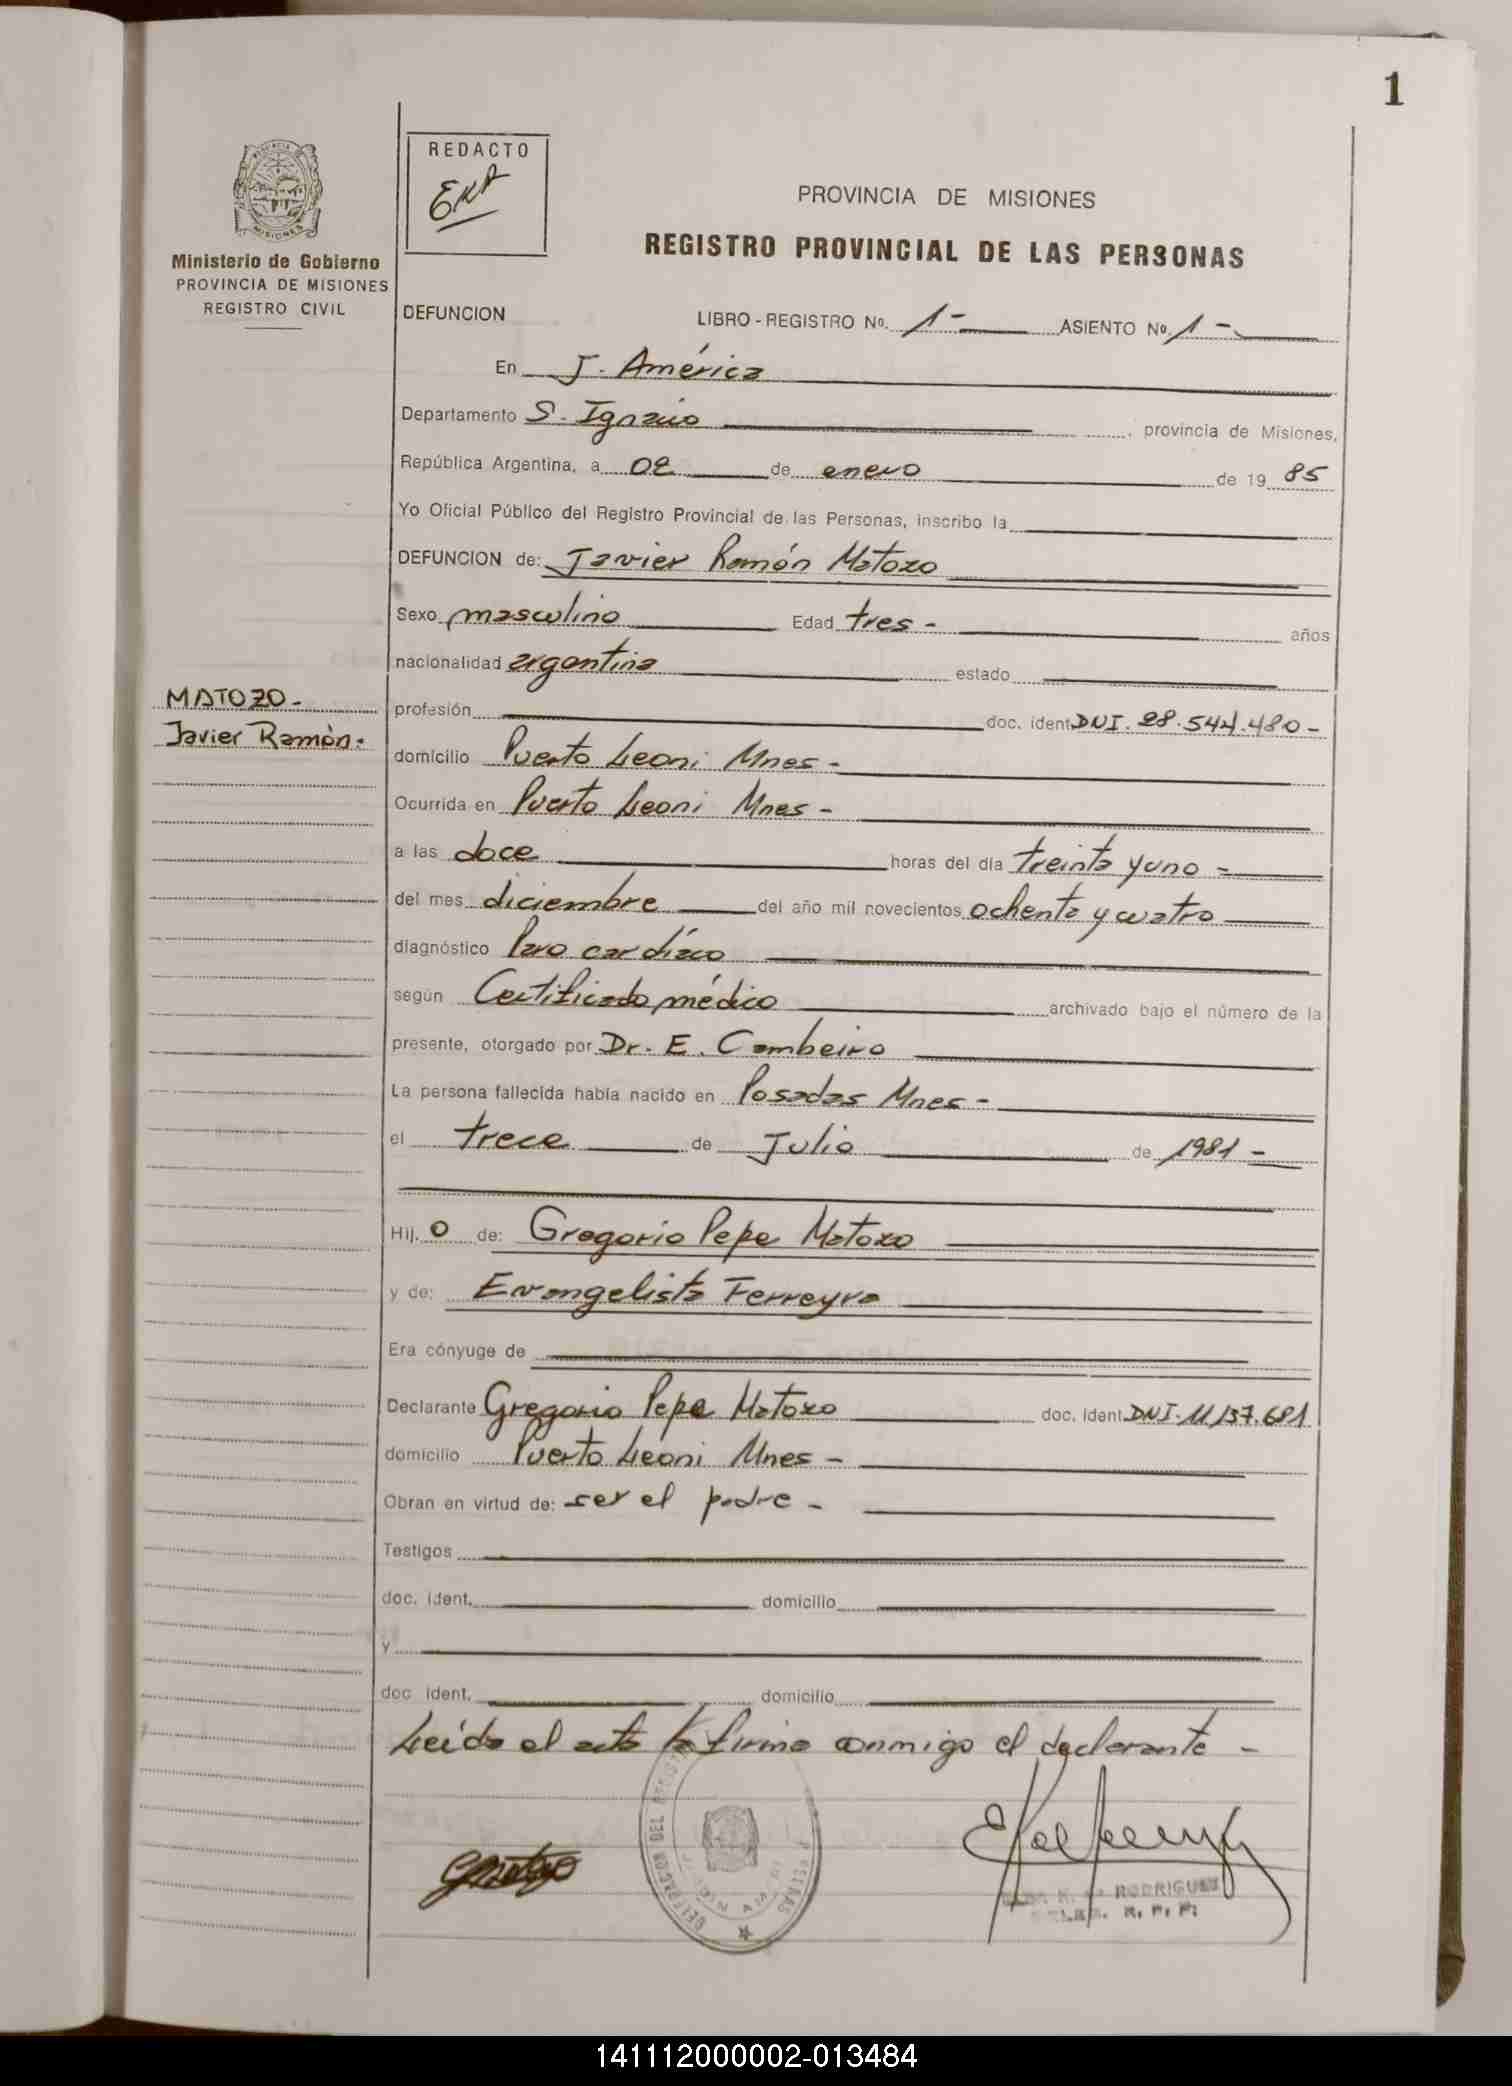 1
REDACTO
PROVINCIA DE MISIONES
REGISTRO PROVINCIAL DE LAS PERSONAS
MISIONES
Ministerio de Gobierno
PROVINCIA DE MISIONES
REGISTRO CIVIL
DEFUNCION LIBRO - REGISTRO No. 1 - ASIENTO No. 1 -
En J. América
Departamento S. Ignacio , provincia de Misiones,
República Argentina, a 02 de enero de 19 85
Yo Oficial Público del Registro Provincial de las Personas, inscribo la
DEFUNCION de: Javier Ramón Matozo
Sexo masculino Edad tres - años
nacionalidad argentina estado
MATOZO -
Javier Ramón.
profesión doc. ident. DNI. 28.544.480 -
domicilio Puerto Leoni Mnes -
Ocurrida en Puerto Leoni Mnes -
a las doce horas del día treinta y uno -
del mes diciembre del año mil novecientos ochenta y cuatro
diagnóstico Paro cardíaco
según Certificado médico archivado bajo el número de la
presente, otorgado por Dr. E. Cambeiro
La persona fallecida había nacido en Posadas Mnes -
el trece de Julio de 1981 -
Hij. o de: Gregorio Pepe Matozo
y de: Evangelista Ferreyra
Era cónyuge de
Declarante Gregorio Pepe Matozo doc. ident. DNI. 11.137.681
domicilio Puerto Leoni Mnes -
Obran en virtud de: ser el padre -
Testigos
doc. ident. domicilio
y
doc ident. domicilio
Leída el acta la firma conmigo el declarante -
RODRIGUEZ
R. P. P.
141112000002-013484